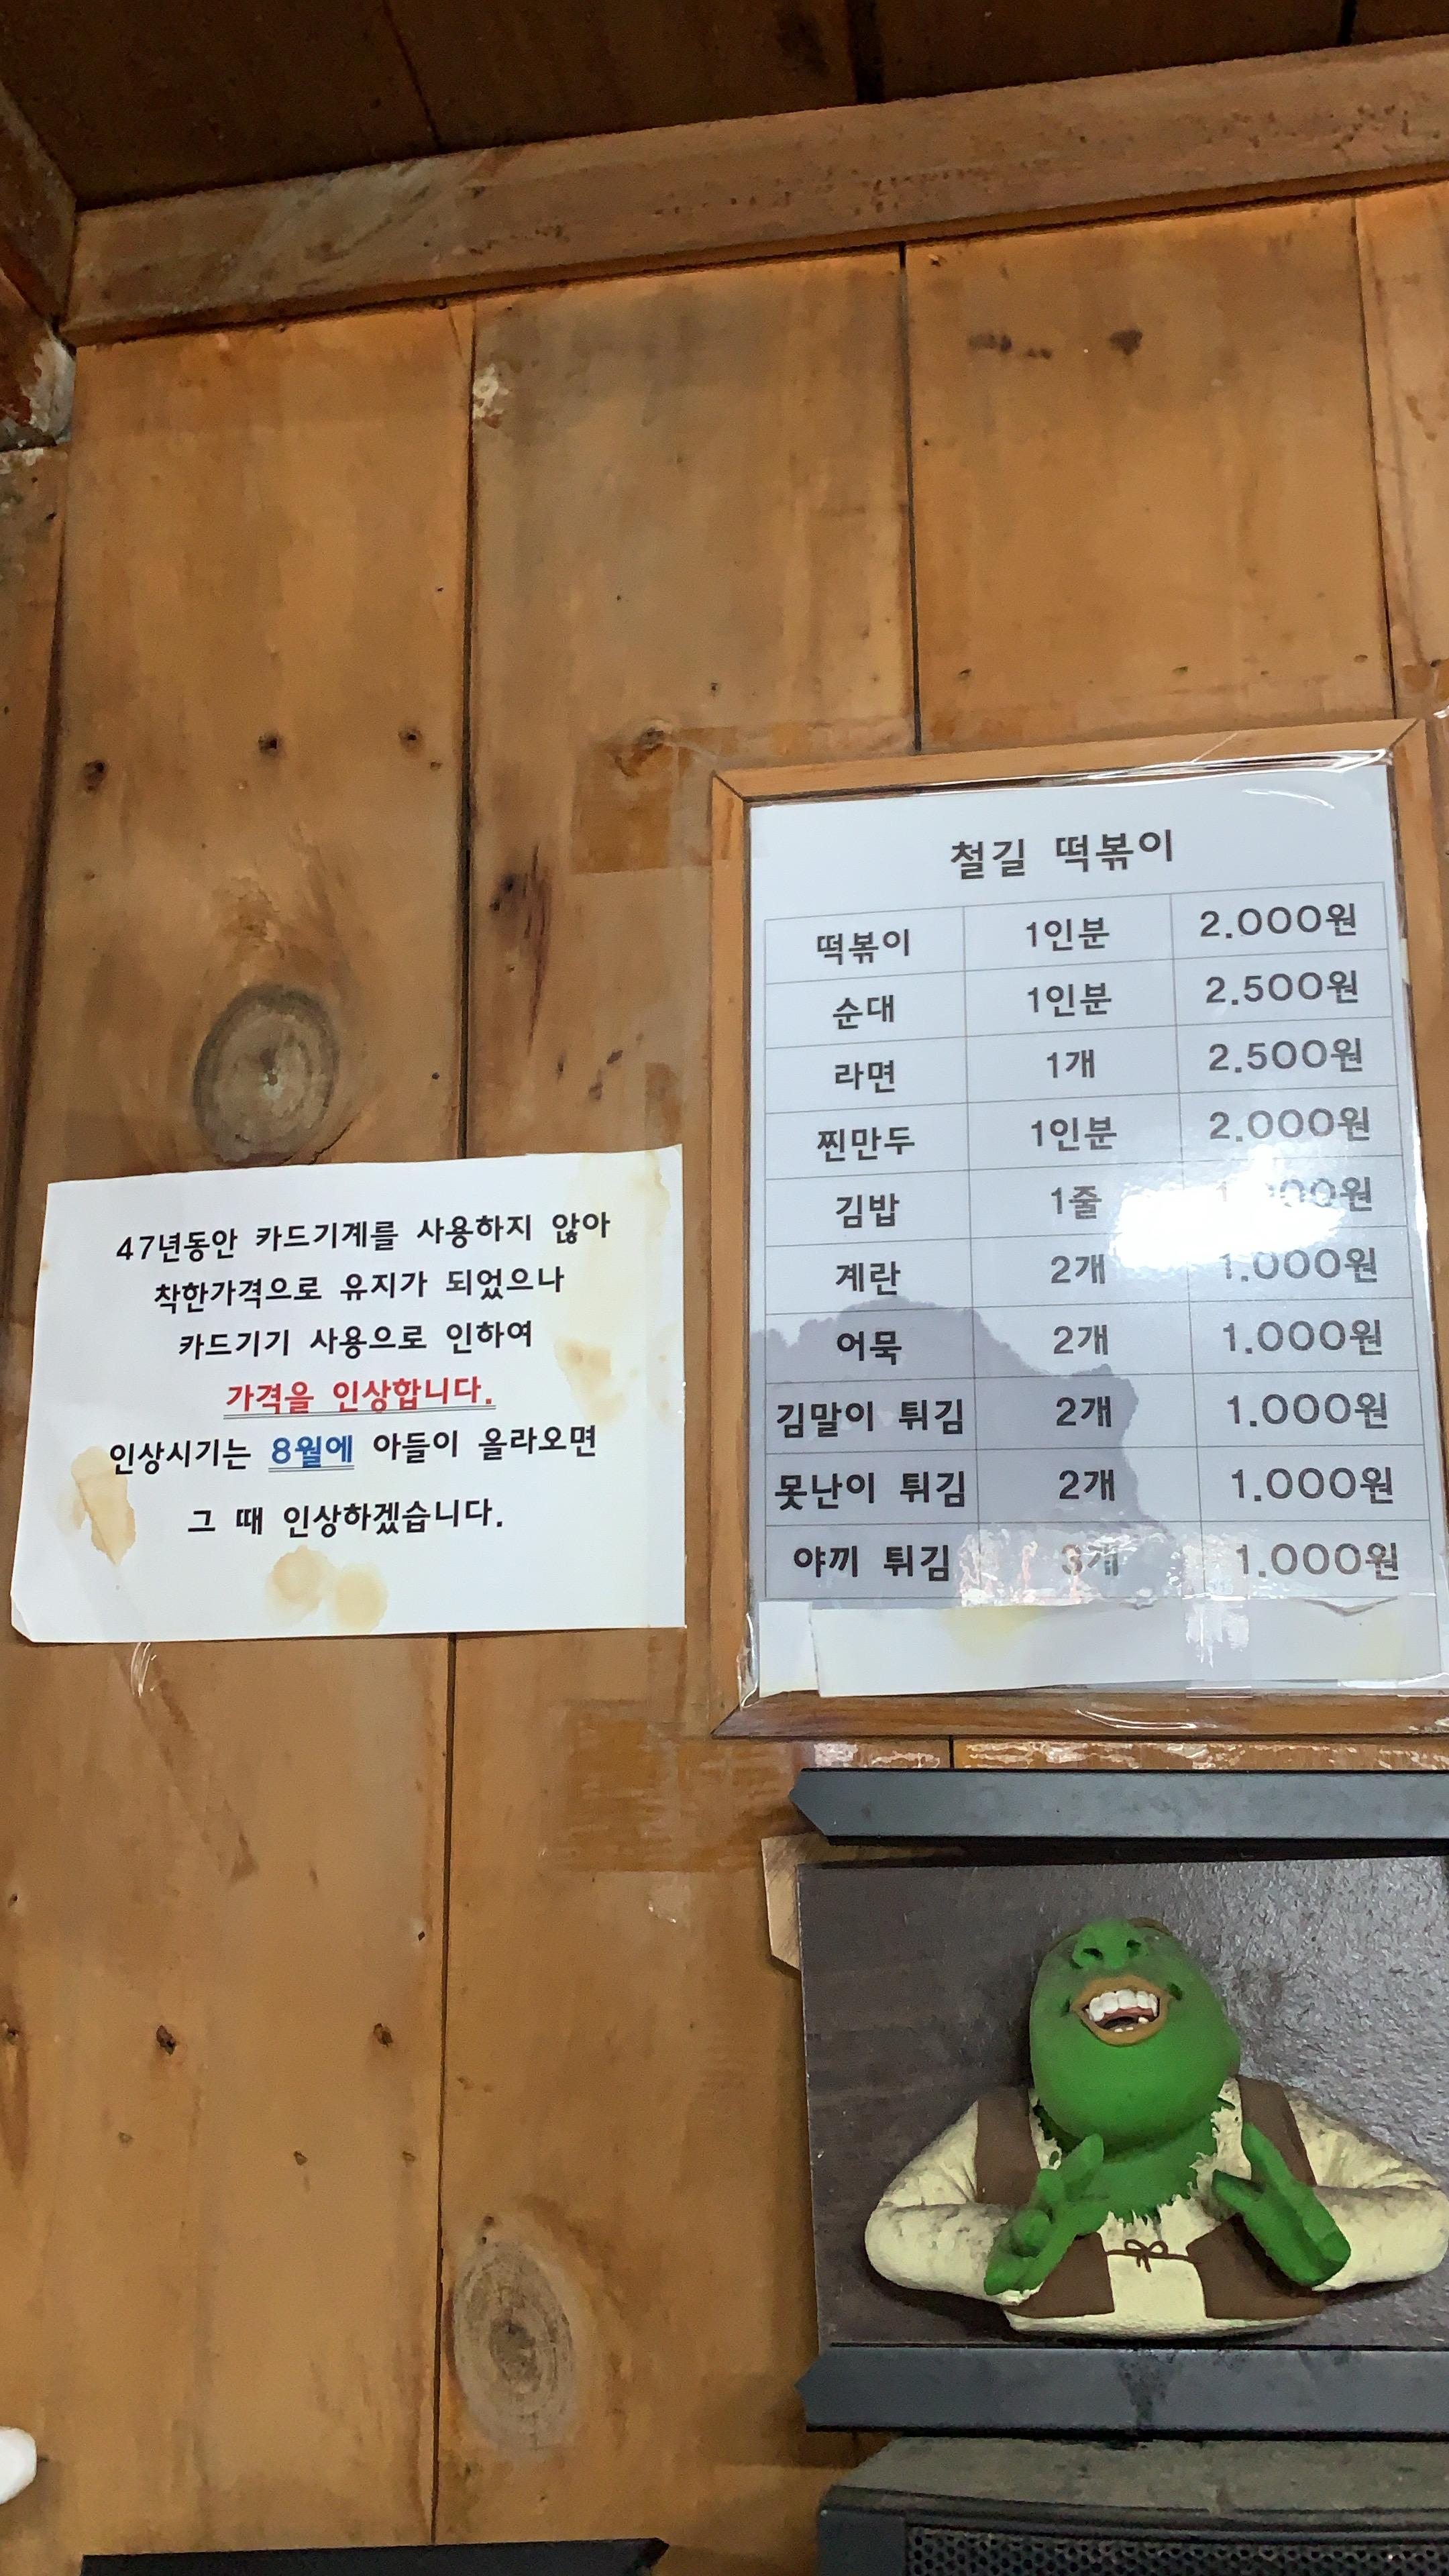 47년동안 카드기계를 사용하지 않아
착한가격으로 유지가 되었으나
카드기기 사용으로 인하여
가격을 인상합니다.
인상시기는 8월에 아들이 올라오면
그 때 인상하겠습니다.
철길 떡볶이
떡볶이 1인분 2.000원
순대 1인분 2.500원
라면 1개 2.500원
찐만두 1인분 2.000원
김밥 1줄
계란 2개 1.000원
어묵 2개 1.000원
김말이 튀김 2개 1.000원
못난이 튀김 2개 1.000원
야끼 튀김 3개 1.000원